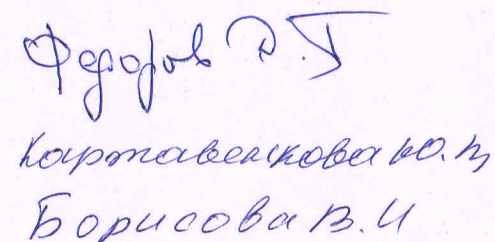 Федоров Д.Г
Картавенкова Ю.Н
Борисова В.И